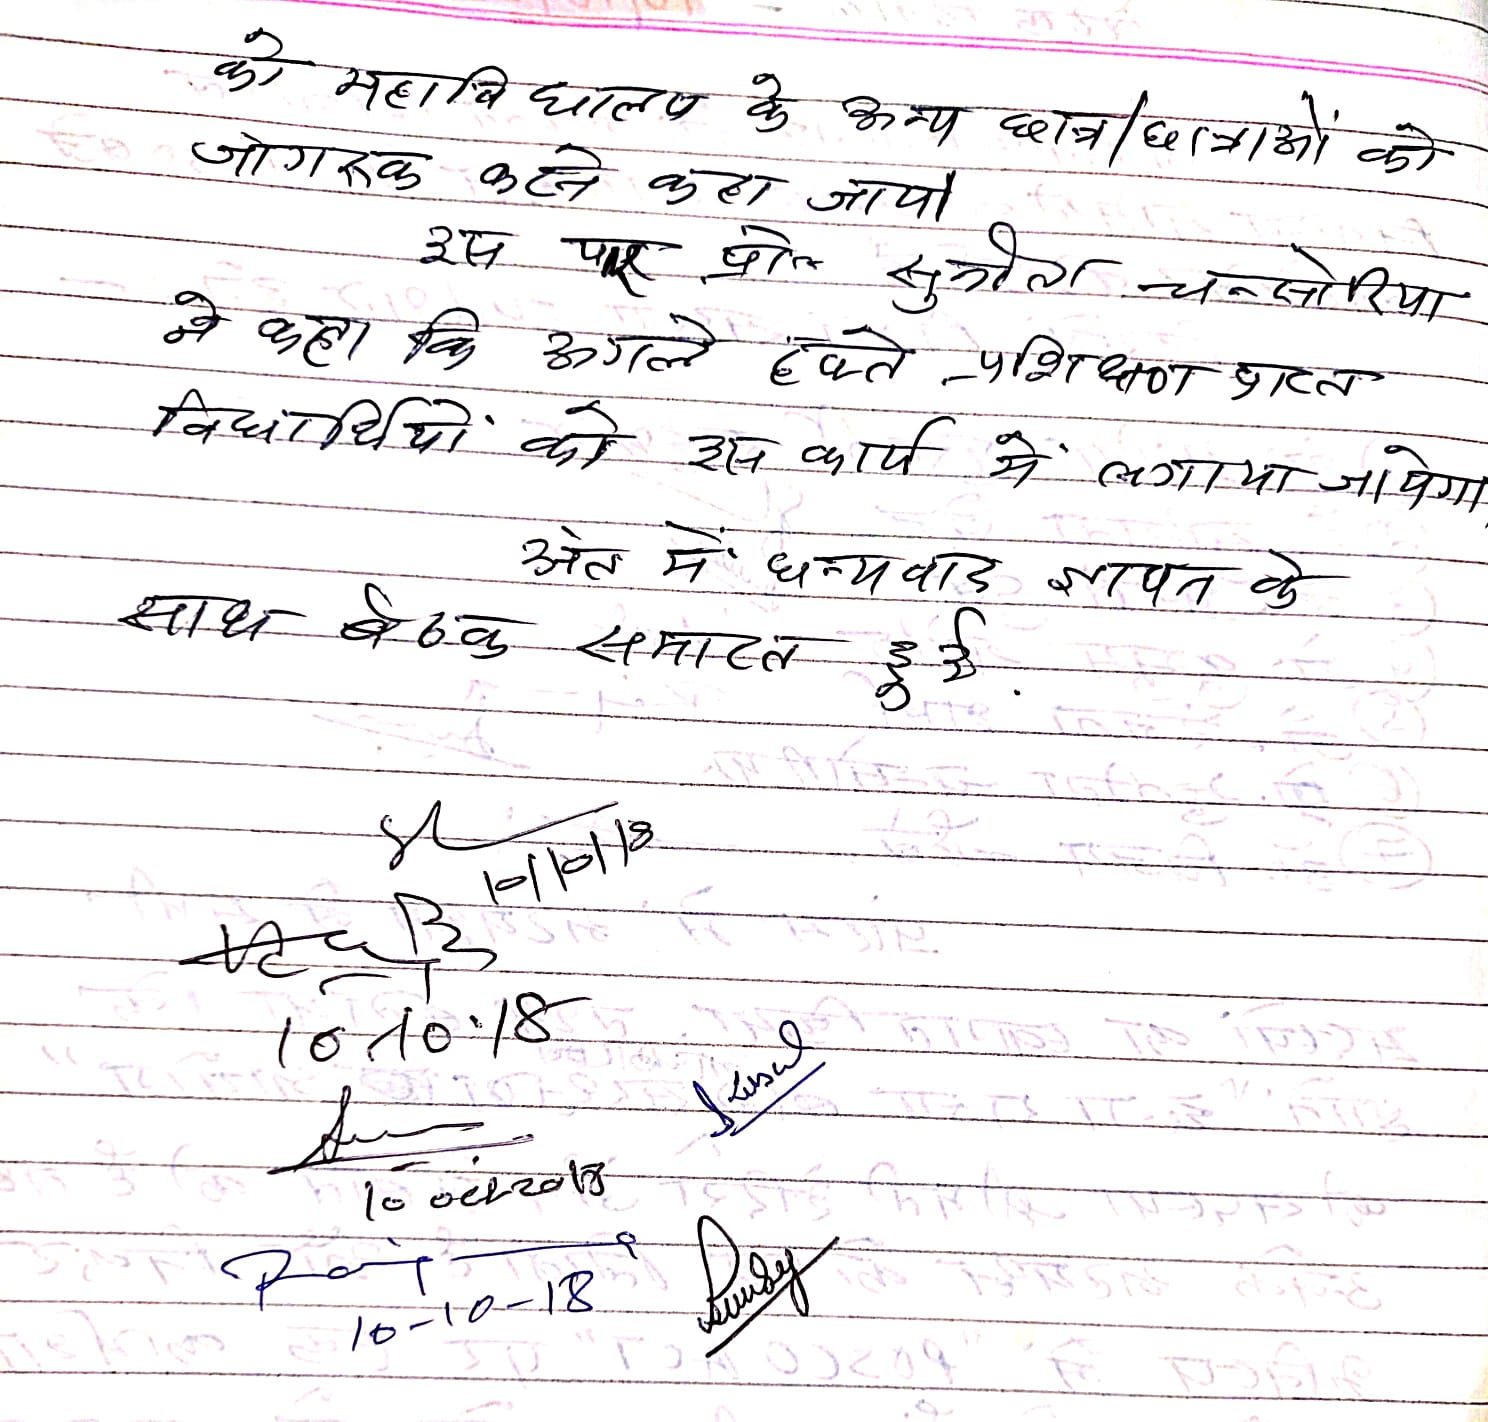 को महाविद्यालय के अन्य छात्र/छात्राओं को
जागरूक करने कहा जाये।
इस पर प्रो० सुनील चन्सोरिया
ने कहा कि अगले हफ्ते प्रशिक्षण प्राप्त
विद्यार्थियों को इस कार्य में लगाया जायेगा
अंत में धन्यवाद ज्ञापन के
साथ बैठक समाप्त हुई.
10/10/18
10.10.18
10 Oct 2018
10-10-18